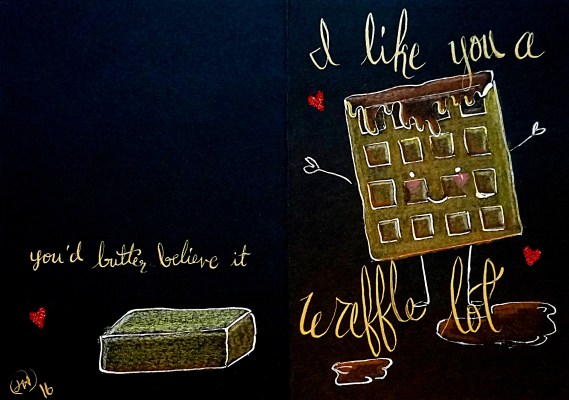 I like you a
waffle lot
you'd butter believe it
16